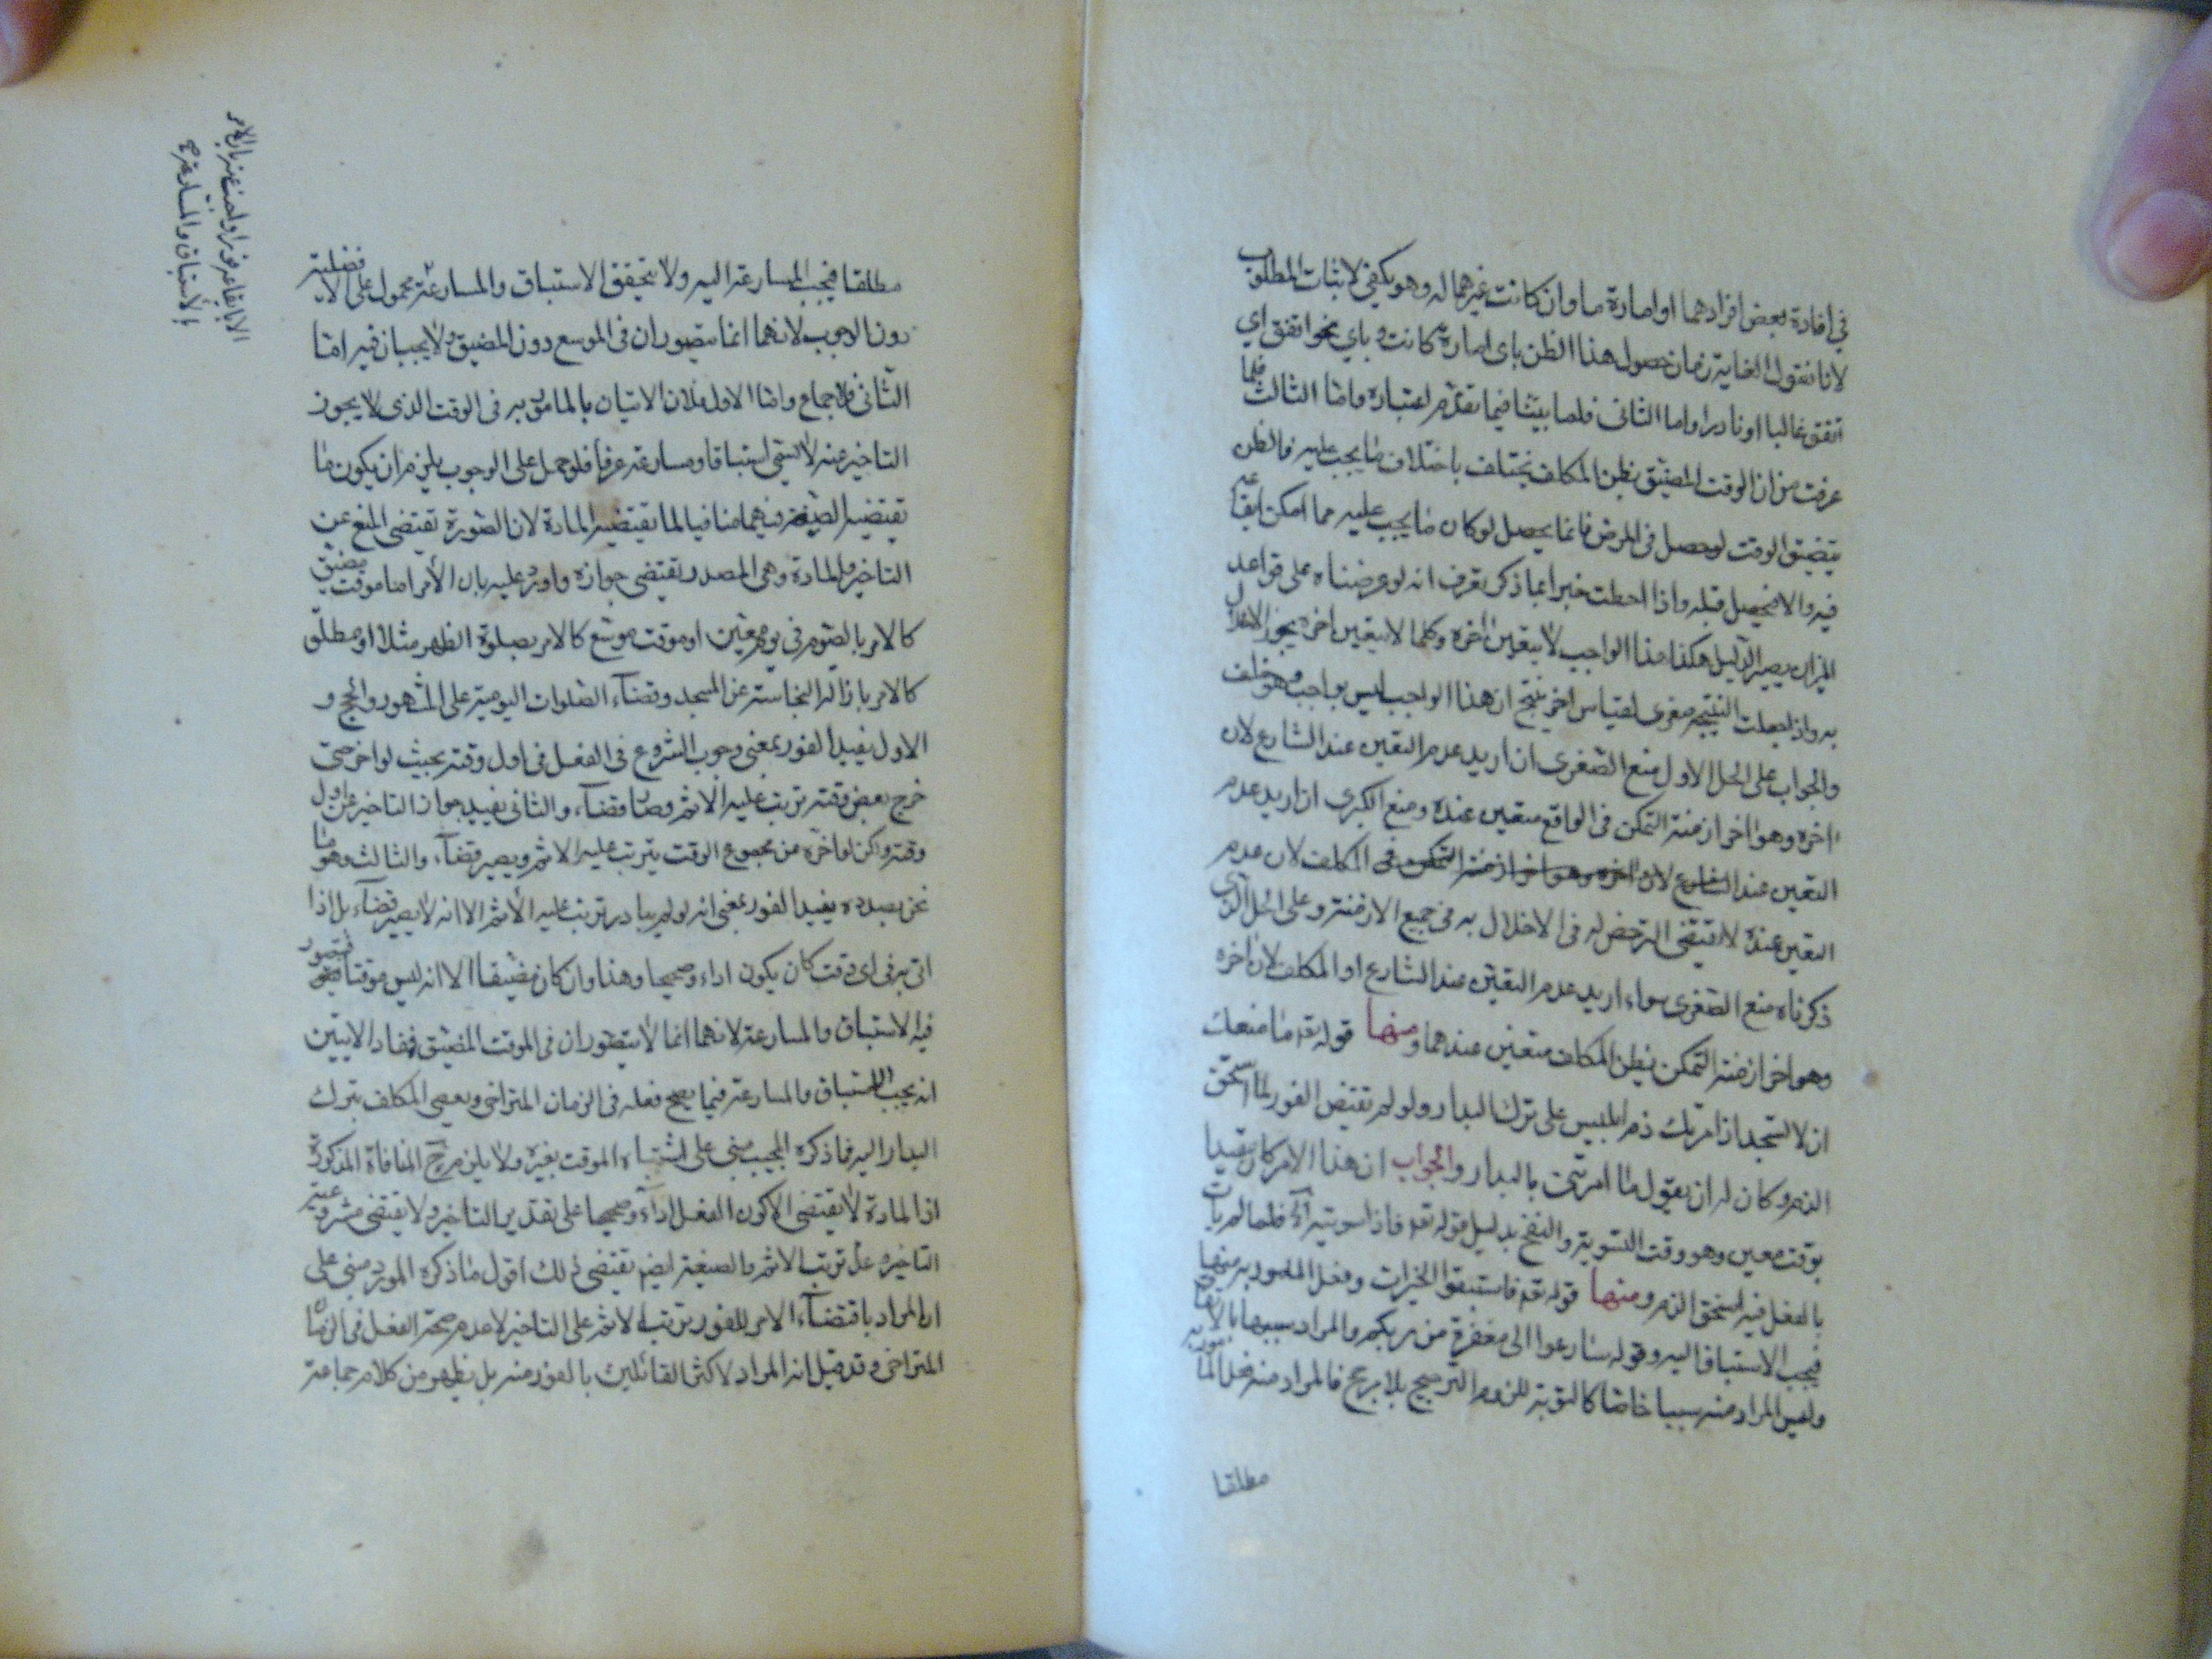 في افادة بعض افرادهما او امارة ما وان كانت غيرهما له وهو يكفي لاثبات المطلوب
لانا نقول الغاية زمان حصول هذا الظن باى امارة كانت و باي نحو اتفق اي
اتفق غالبا او نادرا واما الثانى فلما بيّنا فيما تقدّم اعتباره وامّا الثالث فلما
عرفت من ان الوقت المضيّق بظن المكلف يختلف باختلاف ما يجب عليه فالظن
بتضيق الوقت لو حصل فى المرض فانما يحصل لو كان ما يجب عليه مما امكن ايقاعه
فيه والا فيحصل قبله واذا احطت خبرا بما ذكر تعرف انه لو عرضناه على قواعد
الميزان يصير الدليل هكذا هذا الواجب لا يتعين اخره وكلما لا يتعين اخره يجوز الاخلال
به واذا جعلت النتيجة صغرى لقياس اخر ينتج ان هذا الواجب ليس بواجب وهو خلف
والجواب على الحل الاول منع الصّغرى ان اريد عدم التعين عند الشارع لان
اخره وهو اخر ازمنة التمكن فى الواقع متعين عنده ومنع الكبرى ان اريد عدم
التعين عند الشارع لان اخره وهو اخر ازمنة التمكن فى المكلف لان عدم
التعين عنده لا يقتضى الترخص له فى الاخلال به فى جميع الازمنة وعلى الحل الذي
ذكرناه منع الصّغرى سواء اريد عدم التعيّن عند الشارع او المكلف لان اخره
وهو اخر ازمنة التمكن بظن المكلف متعين عندهما ومنها قوله تع ما منعك
ان لا تسجد اذ امرتك ذم ابليس على ترك البدار ولو لم يقتض الفور لما استحق
الذم وكان له ان يقول ما امرتنى بالبدار والجواب ان هذا الامر كان مقيدا
بوقت معين وهو وقت التسوية والنفخ بدليل قوله تع فاذا سويته الآية فلما لم يات
بالفعل فيه استحق الذم ومنها قوله تع فاستبقوا الخيرات وفعل المامور به منها
فيجب الاستباق اليه وقوله سارعوا الى مغفرة من ربكم والمراد سببها بالاتفاق
وليس المراد منه سببا خاصّا كالتوبة للزوم الترجيح بلا مرجح فالمراد منه فعل المامور به
مطلقا
مطلقا فيجب المسارعة اليه ولا يتحقق الاستباق والمسارعة محمول على الافضلية
دون الوجوب لانهما انما يتصوران فى الموسع دون المضيق ولا يجبان فيه امّا
الثّانى فلاجماع وامّا الاول فلان الاتيان بالمامور به فى الوقت الذى لا يجوز
التاخير عنه لا يسمّى استباقا ومسارعة عرفا فلو حمل على الوجوب يلزم ان يكون ما
تقتضيه الصّيغة فيهما منافيا لما تقتضيه المادة لان الصّورة تقتضى المنع عن
التاخير والمادة وهى المصدر تقتضى جوازه واورد عليه بان الأمر اما موقت مضيّق
كالامر بالصّوم فى يوم معيّن او موقت موسّع كالامر بصلوة الظهر مثلا او مطلق
كالامر بازالة النجاسة عن المسجد وقضآء الصّلوات اليومية على المشهور والحج و
الاول يفيد الفور بمعنى وجوب الشروع فى الفعل فى اول وقته بحيث لو اخر حتى
خرج بعض وقته ترتب عليه الاثم وصار قضآء، والثانى يفيد جواز التاخير عن اول
وقته ولكن لو اخّره من مجموع الوقت يترتب عليه الاثم ويصير قضآء، والثالث وهو ما
نحن بصدده يفيد الفور بمعنى انه لو لم يبادر ترتب عليه الأثم الا انه لا يصير قضآء بل اذا
اتى به فى اى وقت كان يكون اداء وصحيحا وهذا وان كان مضيّقا الا انه ليس موقتا فيتصور
فيه الاستباق والمسارعة لانهما انما لا يتصوّران فى الموقت المضيّق فمفاد الايتين
انه يجب الاستباق والمسارعة فيما يصح فعله فى الزمان المتراخى ويعصى المكلف بترك
البدار اليه فما ذكره المجيب مبنى على اشتباه الموقت بغيره ولا يلزم ح المنافاة المذكورة
اذ المادة لا تقتضى الا كون الفعل اداء وصحيحا على تقدير التاخير ولا تقتضى مشروعية
التاخير و عدم ترتب الاثم والصيغة ايضم تقتضى ذلك اقول ما ذكره المورد مبنى على
ان المراد باقتضآء الامر للفور ترتب الاثم على التاخير لا عدم صحة الفعل فى الزمان
المتراخى وقد قيل انه المراد لاكثر القائلين بالفور منه بل يظهر من كلام جماعة